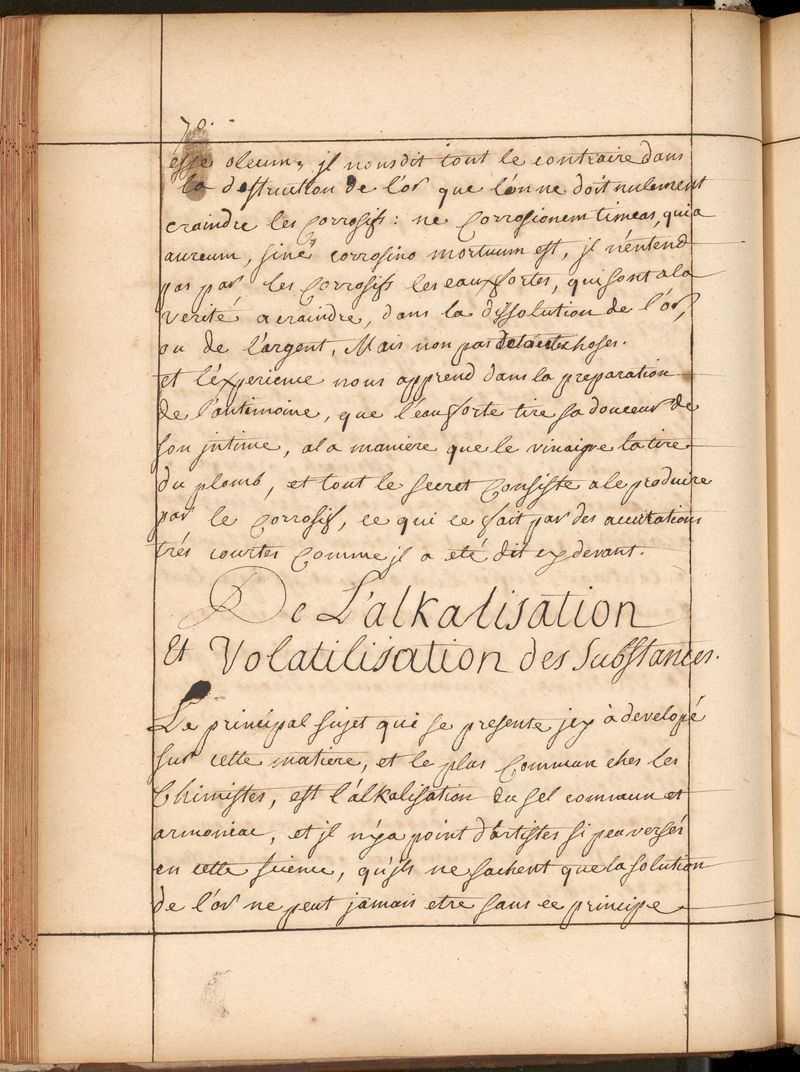 70.
esse oleum, jl nous dit tout le contraire dans
la destruction de l'or que l'on ne doit nulement
craindre les corrosifs: ne corrosionem timeas, quia
aureum, sine corrosino mortuum est, jl n'entend
pas par les corrosifs les eaux fortes, qui sont a la
verité a craindre, dans la dissolution de l'or,
ou de l'argent, Mais non pas choses.
et l'experience nous apprend dans la preparation
de l'antimoine, que l'eau forte tire sa douceur de
son jntime, a la maniere que le vinaigre la tire
du plomb, et tout le secret consiste a le produire
par le corrosif, ce qui ce fait par des
trés courtes comme jl a eté dit cy devant.
De L'alkalisation
Et Volatilisation des Substances.
Le principal sujet qui se presente jcy à developé
sur cette matiere, et le plus commun ches les
Chimistes, est l'alkalisation du sel commun et
armoniac, et jl n'ya point d'artistes si peu versés
en cette science, qu'jls ne sachent que la solution
de l'or ne peut jamais etre sans ce principe